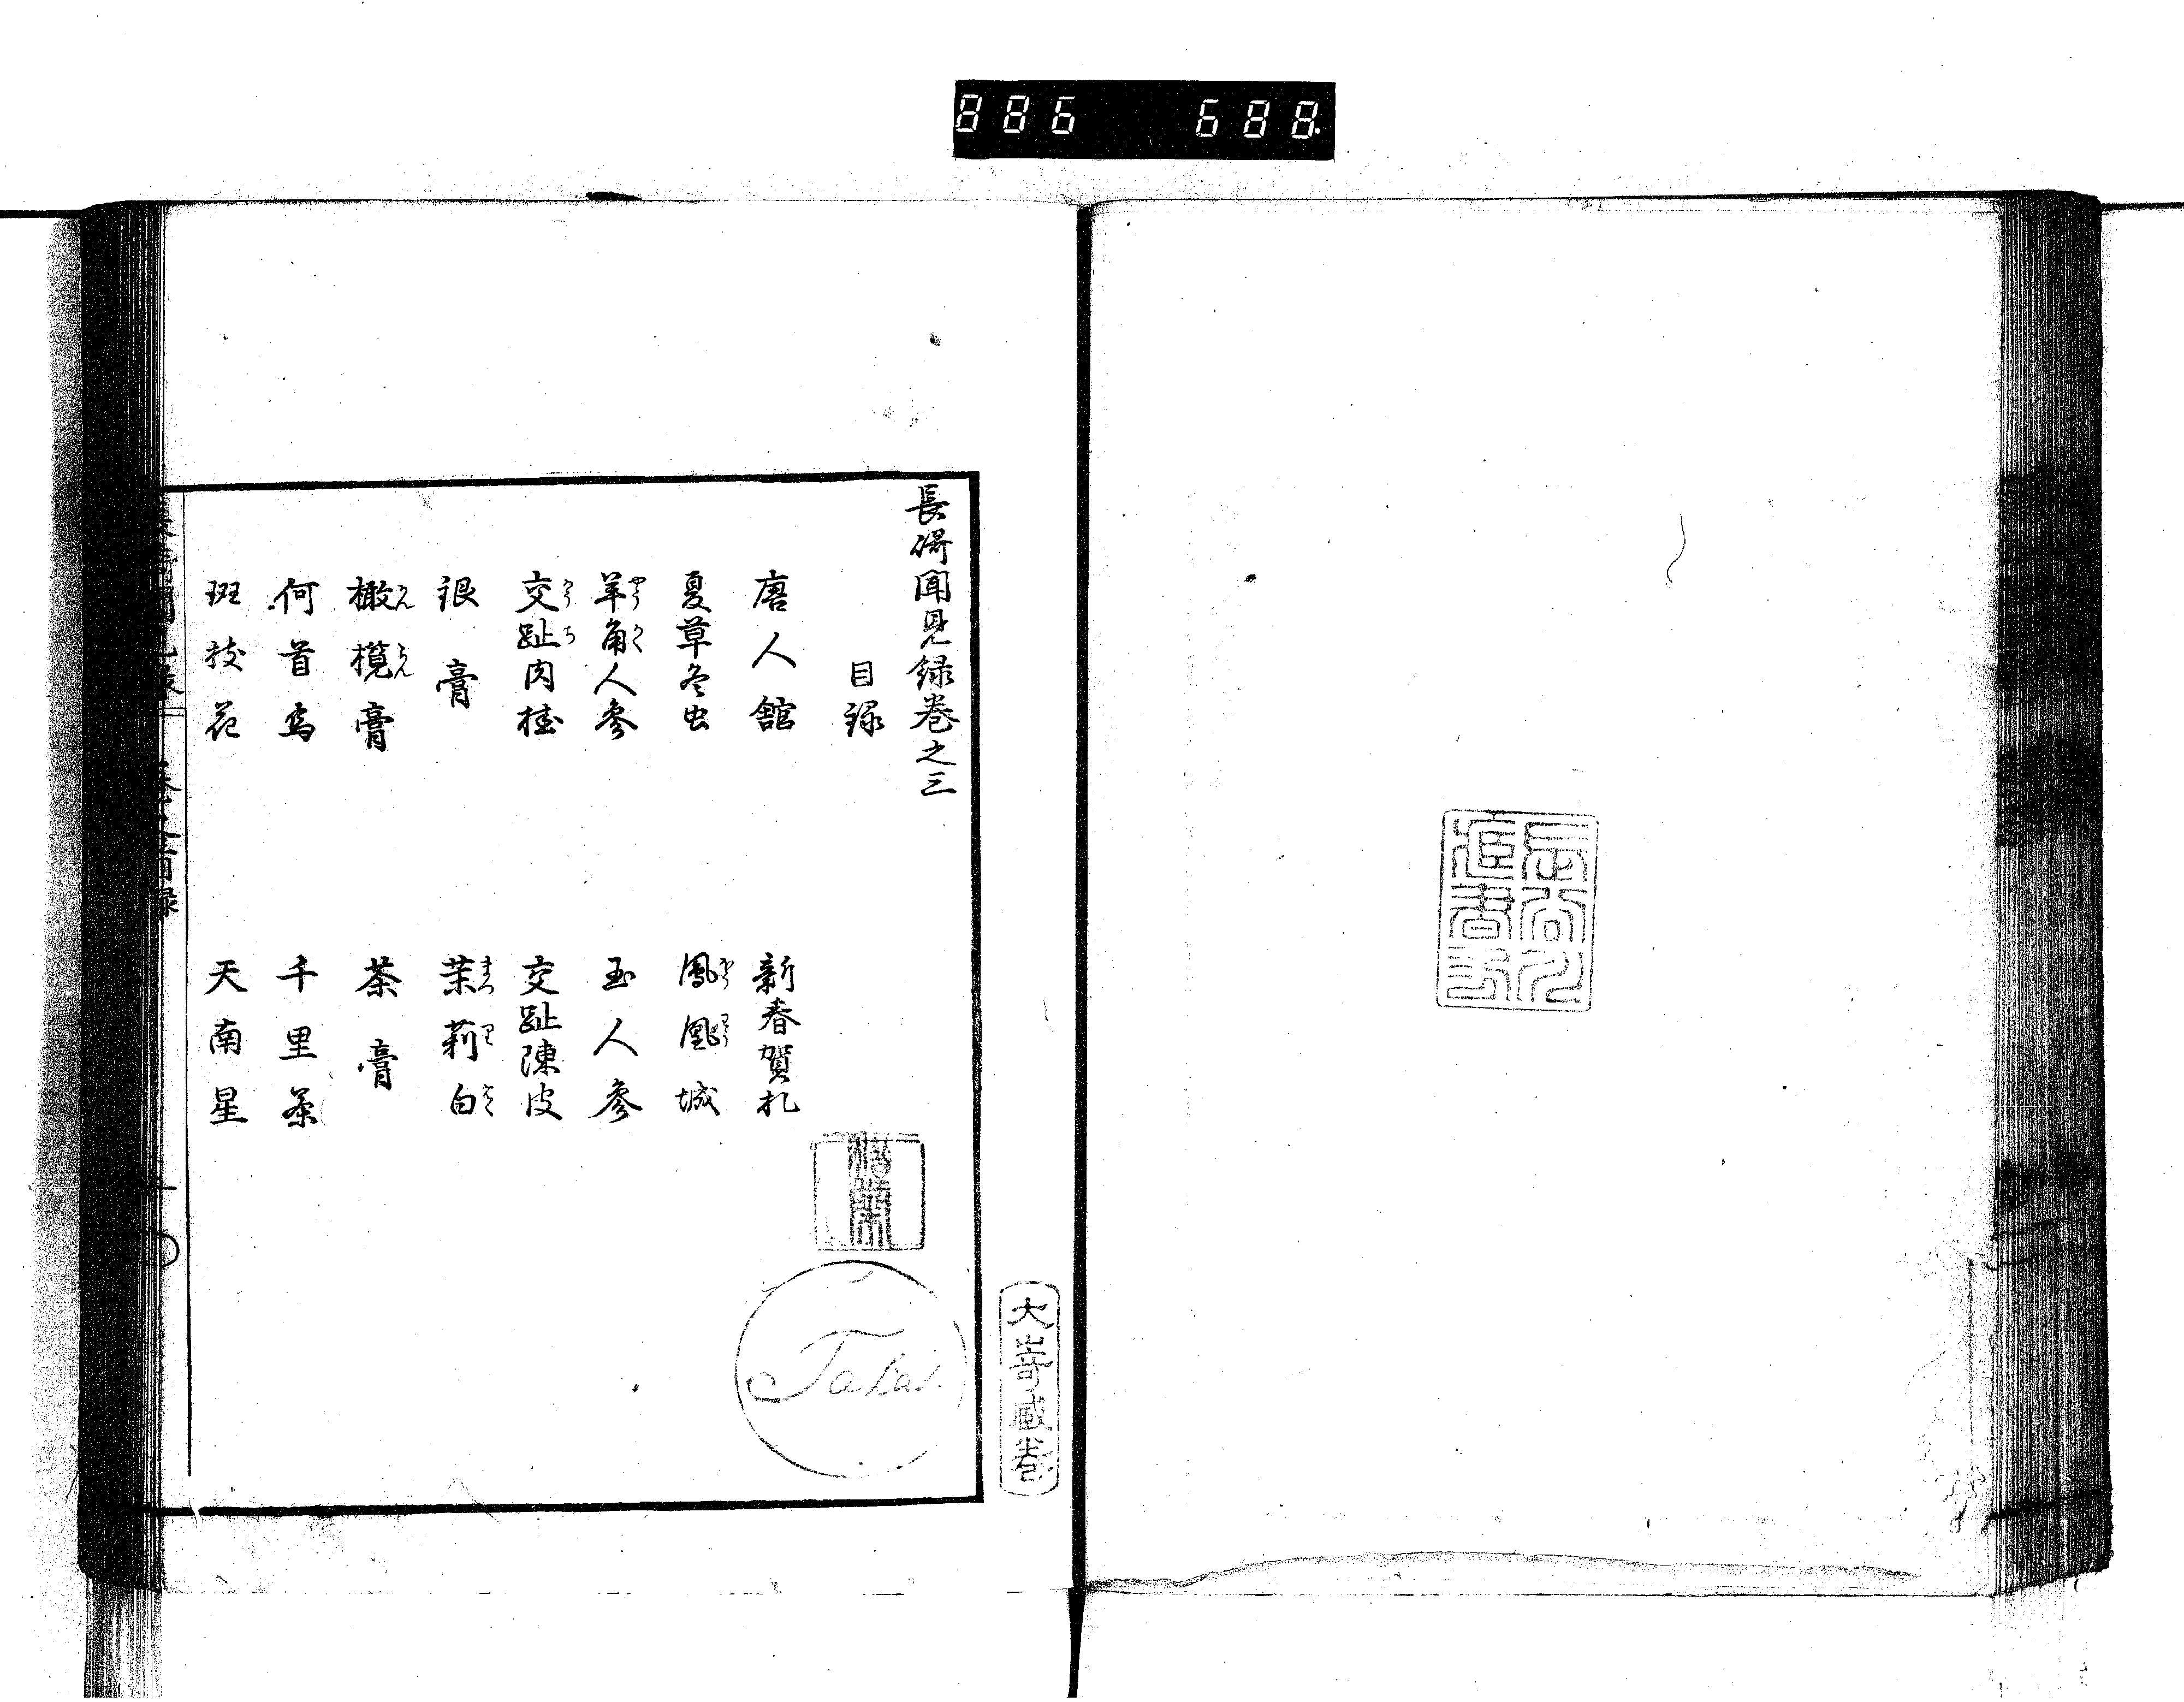 886 688.
長崎聞見録巻之三
目録
唐人館
新春賀札
夏草冬虫
鳳凰城
羊角人参
玉人参
交趾肉桂
交趾陳皮
銀膏
茉莉白
橄欖膏
茶膏
何首烏
千里茶
斑枝花
天南星
大嵜蔵巻
Takai.